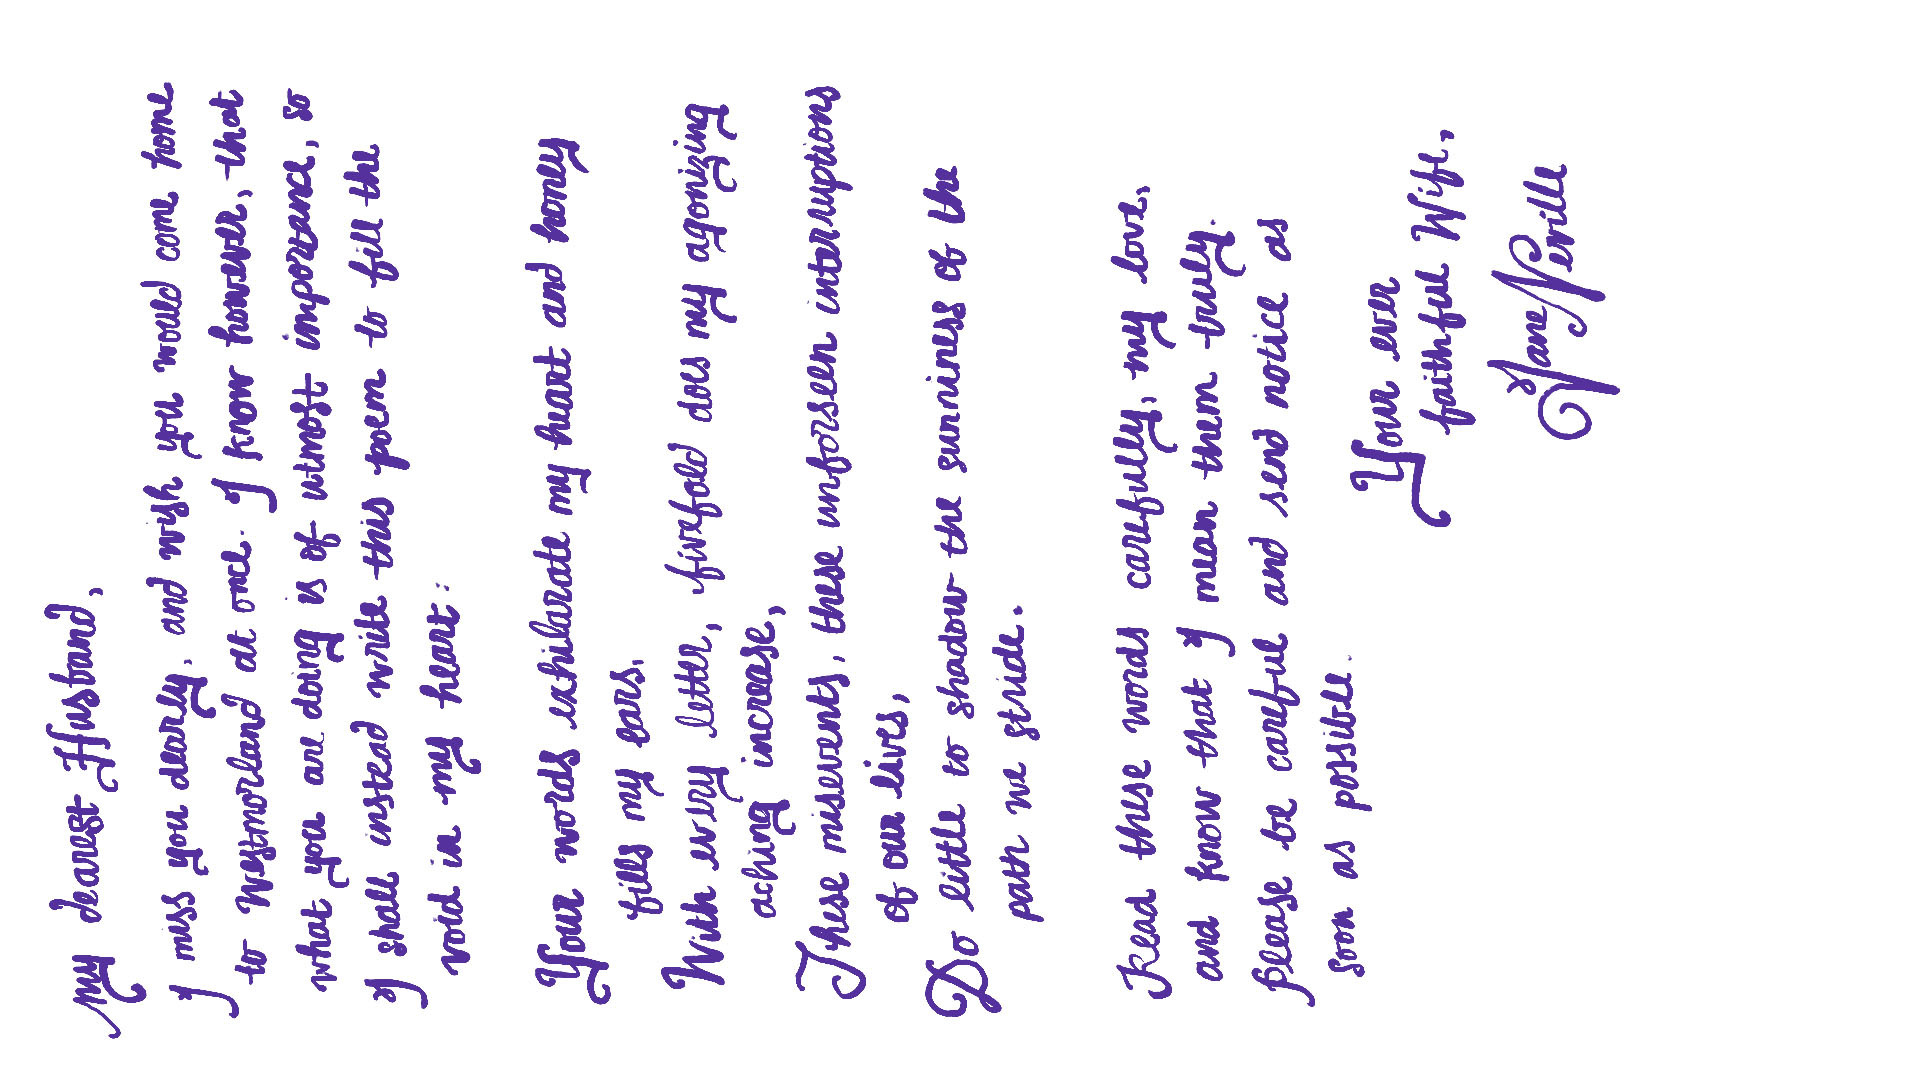 My dearest Husband,
I miss you dearly, and wish you would come home
to Westmorland at once. I know however, that
what you are doing is of utmost importance, so
I shall instead write this poem to fill the
void in my heart:
Your words exhilarate my heart and honey
fills my ears.
With every letter, fivefold does my agonizing
aching increase,
These misevents, these unforseen interruptions
of our lives,
Do little to shadow the sunniness of the
path we stride.
Read these words carefully, my love,
and know that I mean them truly.
Please be careful and send notice as
soon as possible.
Your ever
faithful Wife,
Jane Neville